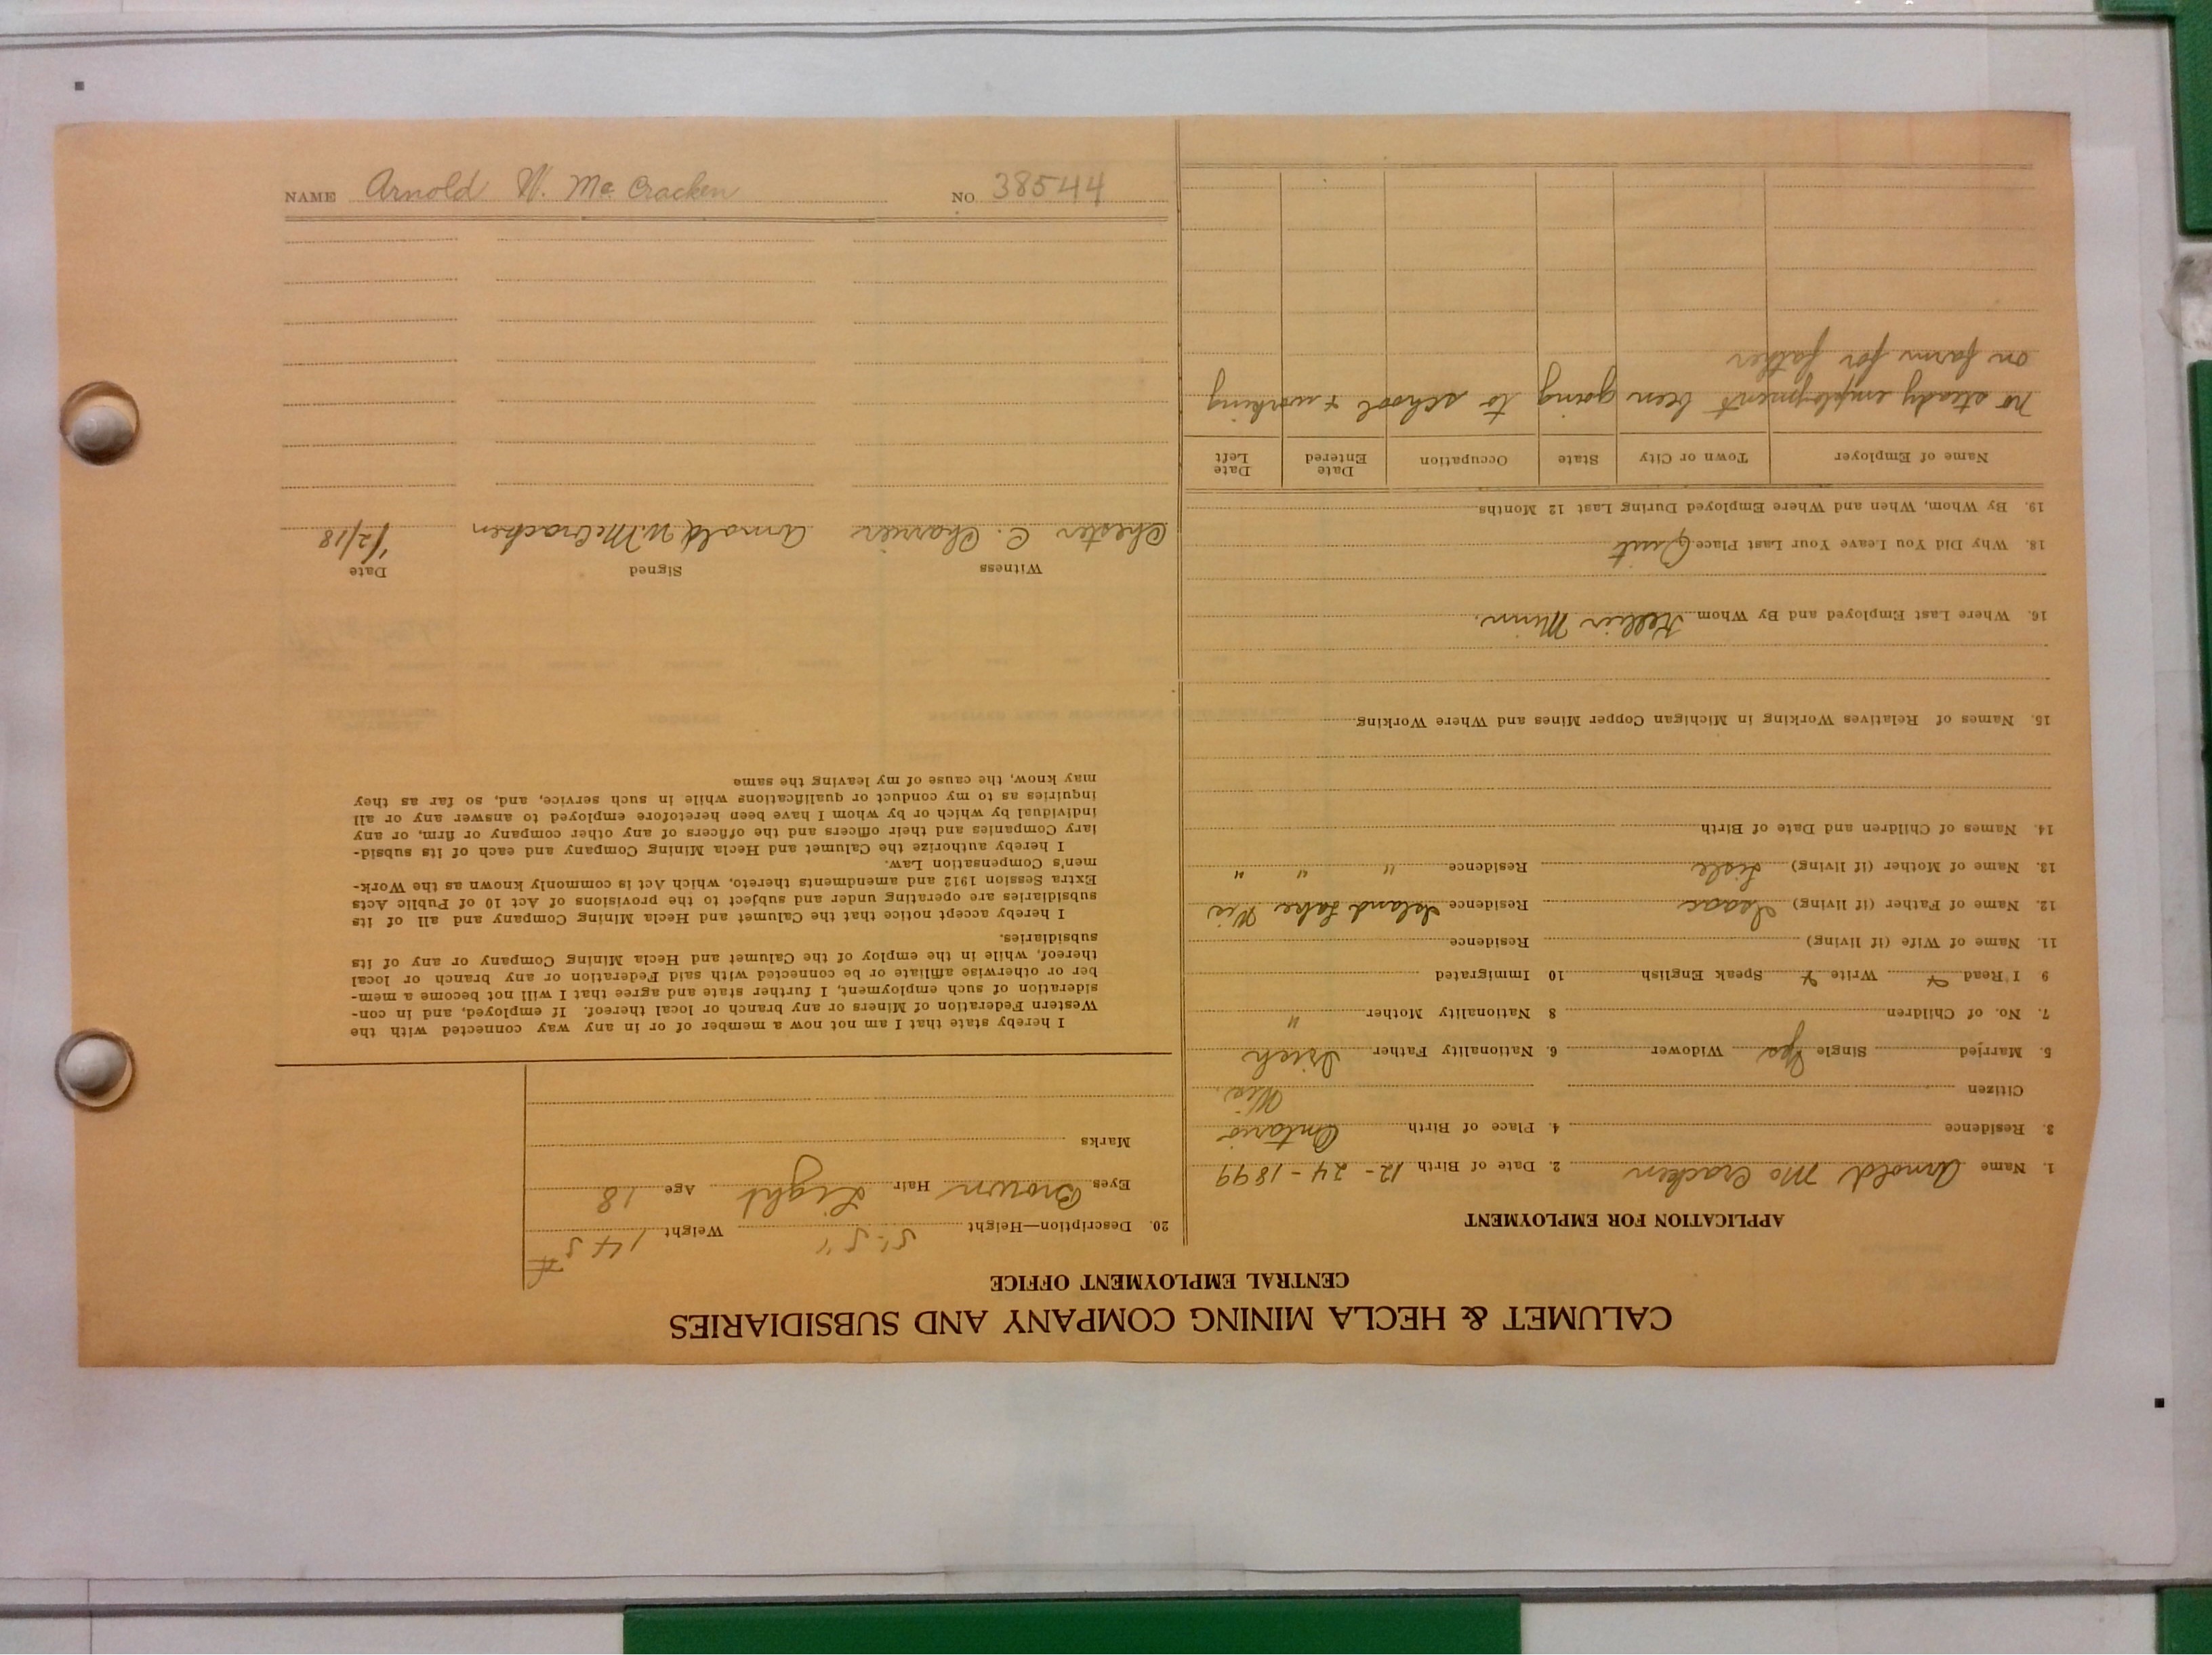 CALUMET & HECLA MINING COMPANY AND SUBSIDIARIES
CENTRAL EMPLOYMENT OFFICE
APPLICATION FOR EMPLOYMENT
1. Name Arnold Mc Cracken 2. Date of Birth 12-24-1899
3. Residence 4. Place of Birth Ontario
Citizen Wis.
5. Married Single Yes Widower 6. Nationality Father Irish
7. No. of Children 8 Nationality Mother "
9 I Read Write Speak English 10 Immigrated
11. Name of Wife (if living) Residence
12. Name of Father (if living) Isaac Residence Island Lake Wis
13. Name of Mother (if living) Residence " " "
14. Names of Children and Date of Birth
15. Names of Relatives Working in Michigan Copper Mines and Where Working
16. Where Last Employed and By Whom Minn.
18. Why Did You Leave Your Last Place Quit
19. By Whom, When and Where Employed During Last 12 Months
Name of Employer Town or City State Occupation Date Entered Date Left
no steady employment been going to school + working
on farm for father
20. Description—Height 5'-5" Weight 145#
Eyes Brown Hair Light Age 18
Marks
I hereby state that I am not now a member of or in any way connected with the
Western Federation of Miners or any branch or local thereof. If employed, and in con-
sideration of such employment, I further state and agree that I will not become a mem-
ber or otherwise affiliate or be connected with said Federation or any branch or local
thereof, while in the employ of the Calumet and Hecla Mining Company or any of its
subsidiaries.
I hereby accept notice that the Calumet and Hecla Mining Company and all of its
subsidiaries are operating under and subject to the provisions of Act 10 of Public Acts
Extra Session 1912 and amendments thereto, which Act is commonly known as the Work-
men's Compensation Law.
I hereby authorize the Calumet and Hecla Mining Company and each of its subsid-
iary Companies and their officers and the officers of any other company or firm, or any
individual by which or by whom I have been heretofore employed to answer any or all
inquiries as to my conduct or qualifications while in such service, and, so far as they
may know, the cause of my leaving the same
Witness Signed Date
Chester C. Arnold W. McCracken 1/2/18
NAME Arnold W. McCracken NO. 38544